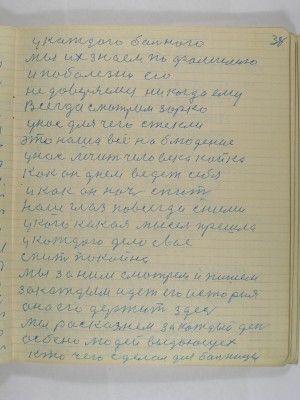 38
у каждого больного
мы их знаем по фамилию
и по болезни его
не доверяем никогда ему
Всегда смотрим зорко
у нас для чего стекли
это наша всё на блюдение
у нас лежит человека койка
как он днем ведет себя
и как он ноч спит
наш глаз повсегда сними
у кого какая мысел пришла
у каждого дело свае
спит покойно
мы за ним смотрем и пишем
за каждым идет его история
она его держит здес
мы раскажем за каждый ден
особено людей выдающех
кто чего сделал для больницы